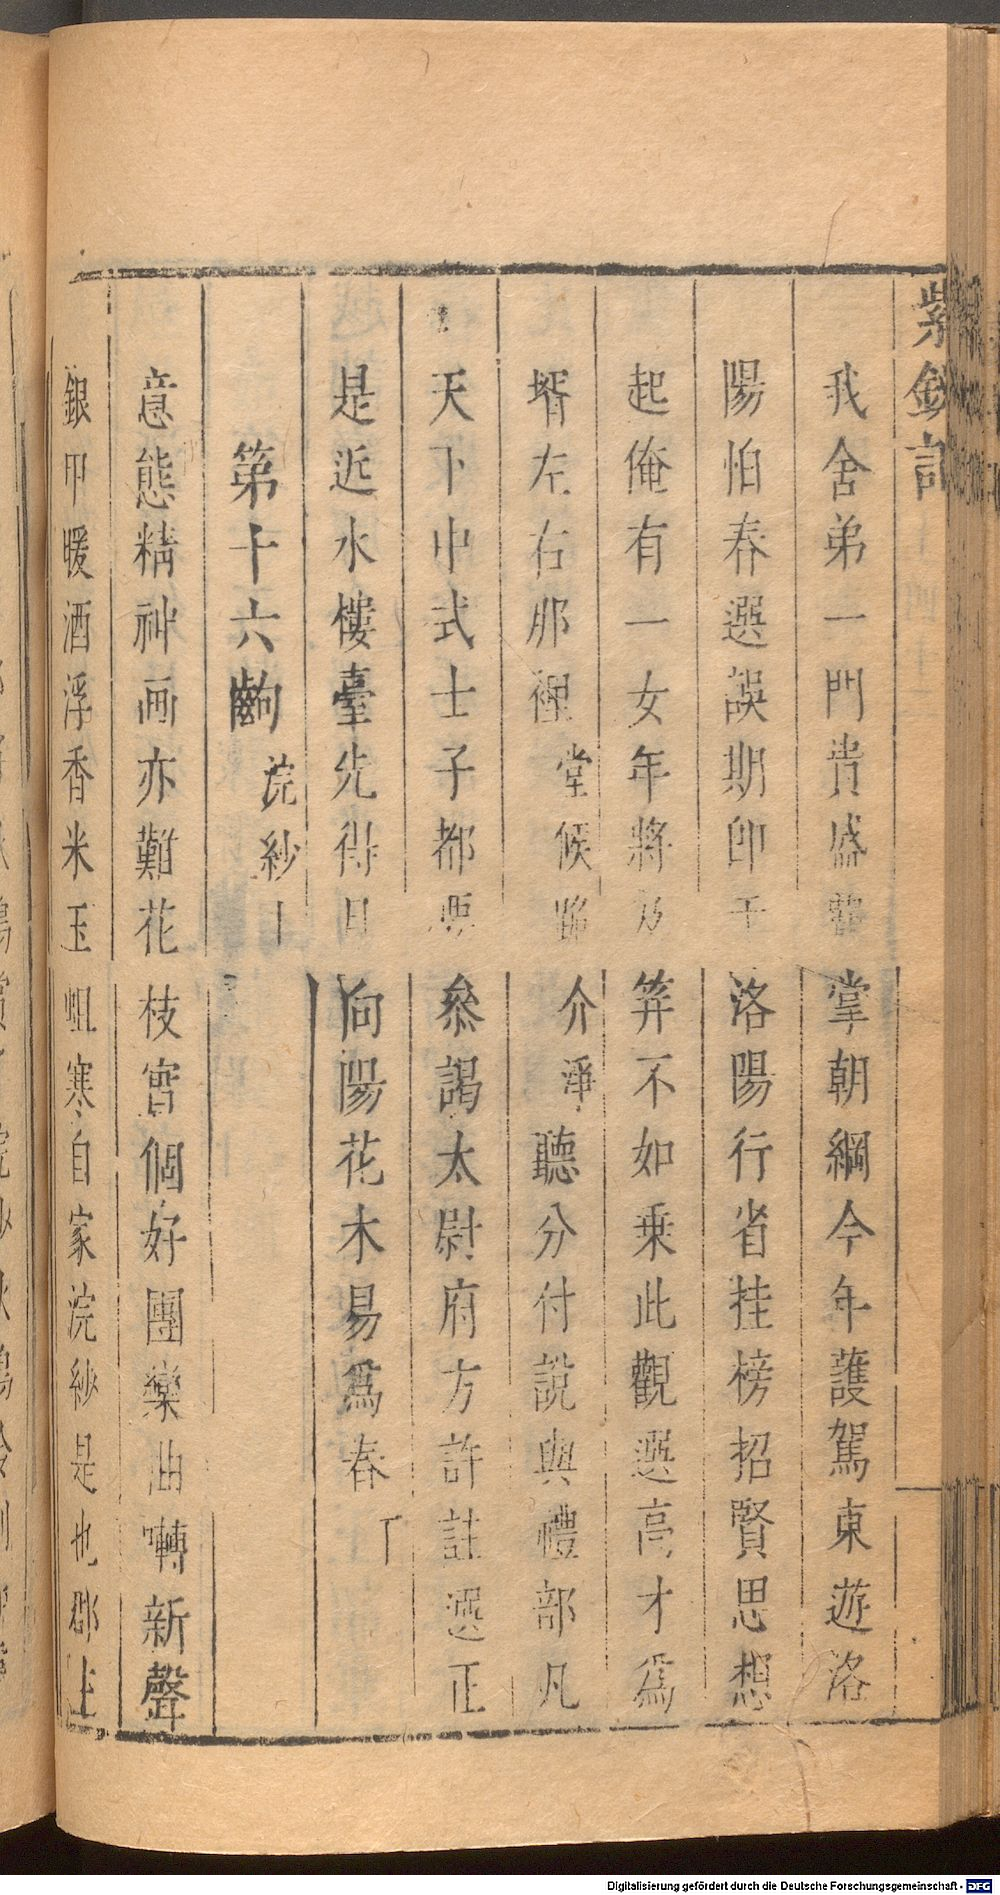 紫釵記
我舍弟一門貴盛盤掌朝綱今年護駕東遊洛
陽怕春選誤期卽于洛陽行省挂榜招賢思想
起俺有一女年將及笄不如乗此觀選高才爲
壻左右那裡堂候跪介淨聽分付說與禮部凡
天下中式士子都要叅謁太尉府方許註選正
是近水樓臺先得月向陽花木易爲春
第十六齣 浣紗
意態精神画亦難花枝實個好團欒曲囀新聲
銀甲暖酒浮香米玉蛆寒自家浣紗是也郡主
Digitalisierung gefördert durch die Deutsche Forschungsgemeinschaft - DFG